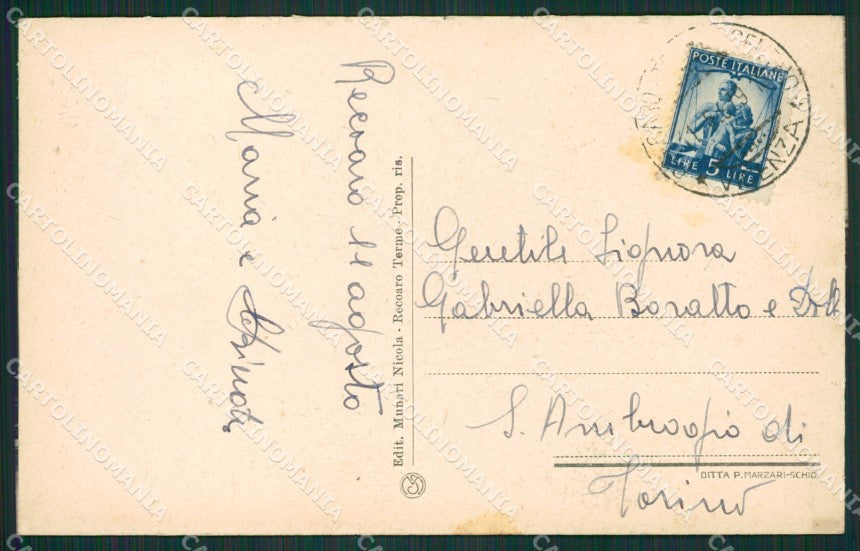 Recoaro 11 agosto
Maria e
Edit. Munari Nicola - Recoaro Terme - Prop. ris.
POSTE ITALIANE
LIRE 5 LIRE
VICENZA
Gentile Signora
Gabriella Boratto e
S. Ambrogio di
Torino
DITTA P. MARZARI-SCHIO
CARTOLINOMANIA